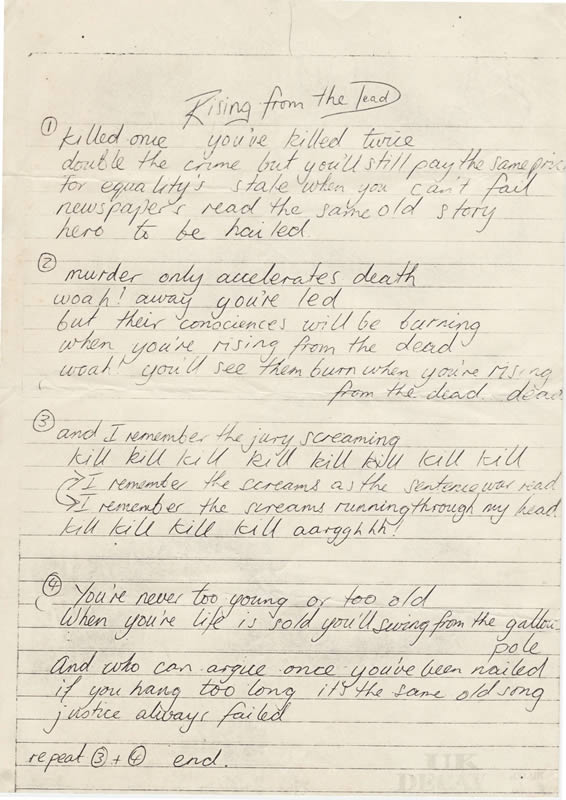 Rising from the Dead
① killed once you've killed twice
double the crime but you'll still pay the same price
for equality's stale when you can't fail
newspapers read the same old story
hero to be hailed.
② murder only accelerates death
woah! away you're led
but their consciences will be burning
when you're rising from the dead
woah! you'll see them burn when you're rising
from the dead. dead
③ and I remember the jury screaming
kill kill kill kill kill kill kill kill
I remember the screams as the sentence was read
I remember the screams running through my head
kill kill kill kill aargghhh!
④ You're never too young or too old
When you're life is sold you'll swing from the gallow
pole
And who can argue once you've been nailed
if you hang too long it's the same old song
justice always failed
repeat ③ + ④ end.
UK
DECAY